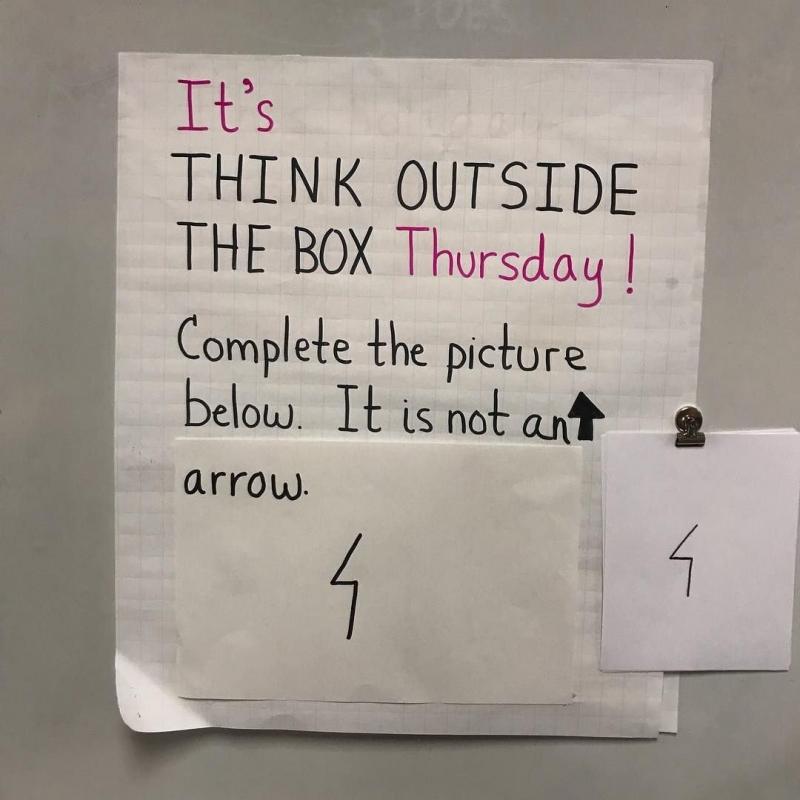 It's
THINK OUTSIDE
THE BOX Thursday!
Complete the picture
below. It is not an
arrow.